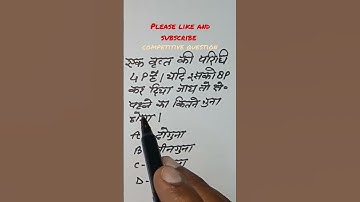 PLEASE LIKE AND
SUBSCRIBE
COMPETITIVE QUESTION
एक वृत्त की परिधि
4P है। यदि इसको 8P
कर दिया जाय तो क्षे॰
पहले का कितने गुना
होगा।
A- दोगुना
B- तीनगुना
C-
D-